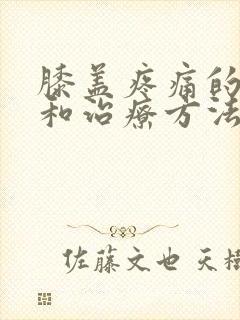 膝盖疼痛的
和治療方法
佐藤文也 天樹